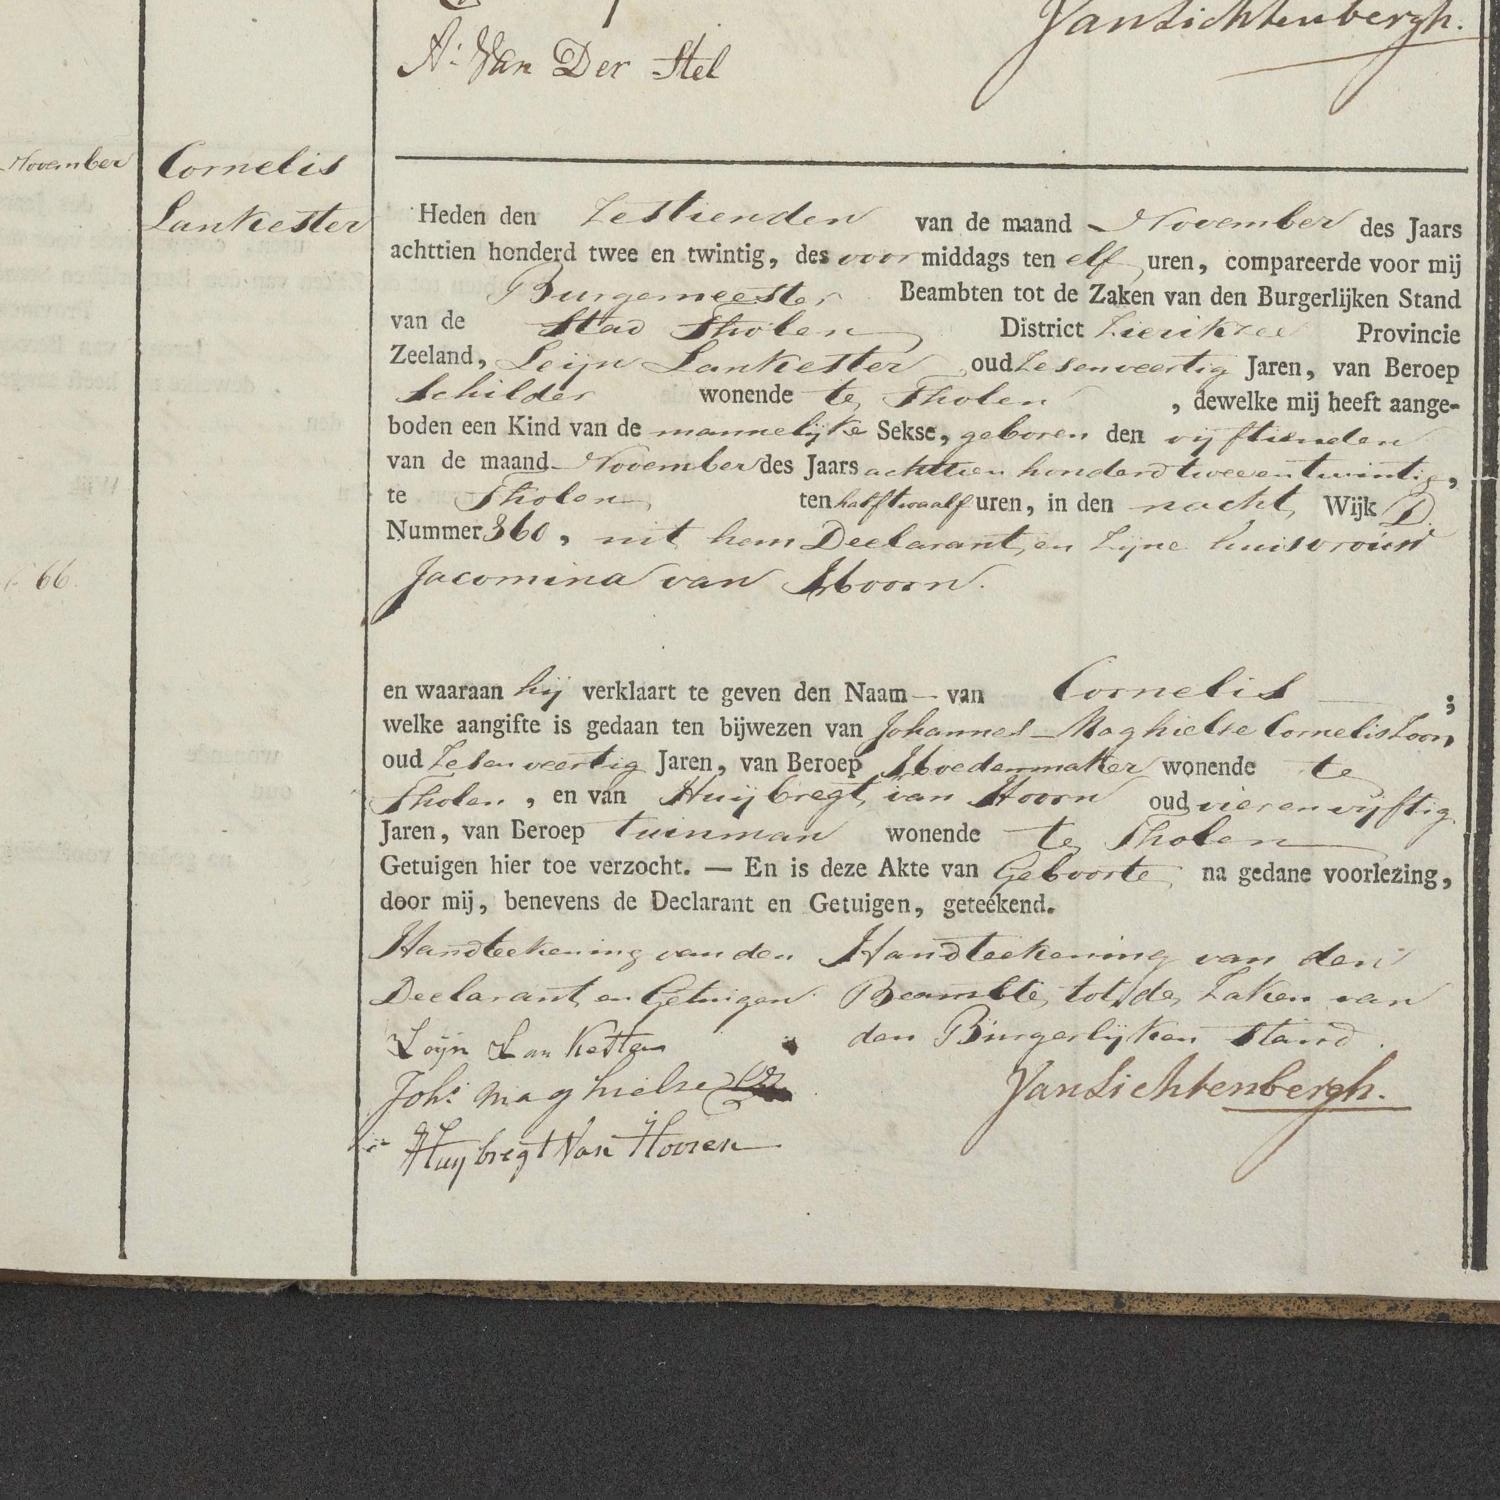 A: Van Der Stel
VanLichtenbergh.
November
Cornelis
Lankester
Heden den Zestienden van de maand November des Jaars
achttien honderd twee en twintig, des voormiddags ten elf uren, compareerde voor mij
Burgemeester Beambten tot de Zaken van den Burgerlijken Stand
van de Stad Tholen District Zierikzee Provincie
Zeeland, Leijn Lankester oud Zesenveertig Jaren, van Beroep
Schilder wonende te Tholen, dewelke mij heeft aange-
boden een Kind van de mannelijke Sekse, geboren den vijftienden
van de maand November des Jaars achttien honderd tweeentwintig,
te Tholen ten half twaalf uren, in den nacht Wijk D.
Nummer 360, uit hem Declarant, en Zijne huisvrouw
Jacomina van Hoorn.
66.
en waaraan hij verklaart te geven den Naam — van Cornelis ;
welke aangifte is gedaan ten bijwezen van Johannes Maghielse Cornelis Zoon
oud Zesenveertig Jaren, van Beroep Hoedenmaker wonende te
Tholen, en van Huijbregt van Hoorn oud vierenvijftig
Jaren, van Beroep tuinman wonende te Tholen
Getuigen hier toe verzocht. — En is deze Akte van Geboorte na gedane voorlezing,
door mij, benevens de Declarant en Getuigen, geteekend.
Handteekening van den
Declarant en Getuigen.
Handteekening van den
Beambte tot de Zaken van
den Burgerlijken stand.
Leijn Lankester
Joh: Maghielse CZ
Huybregt Van Hooren
VanLichtenbergh.